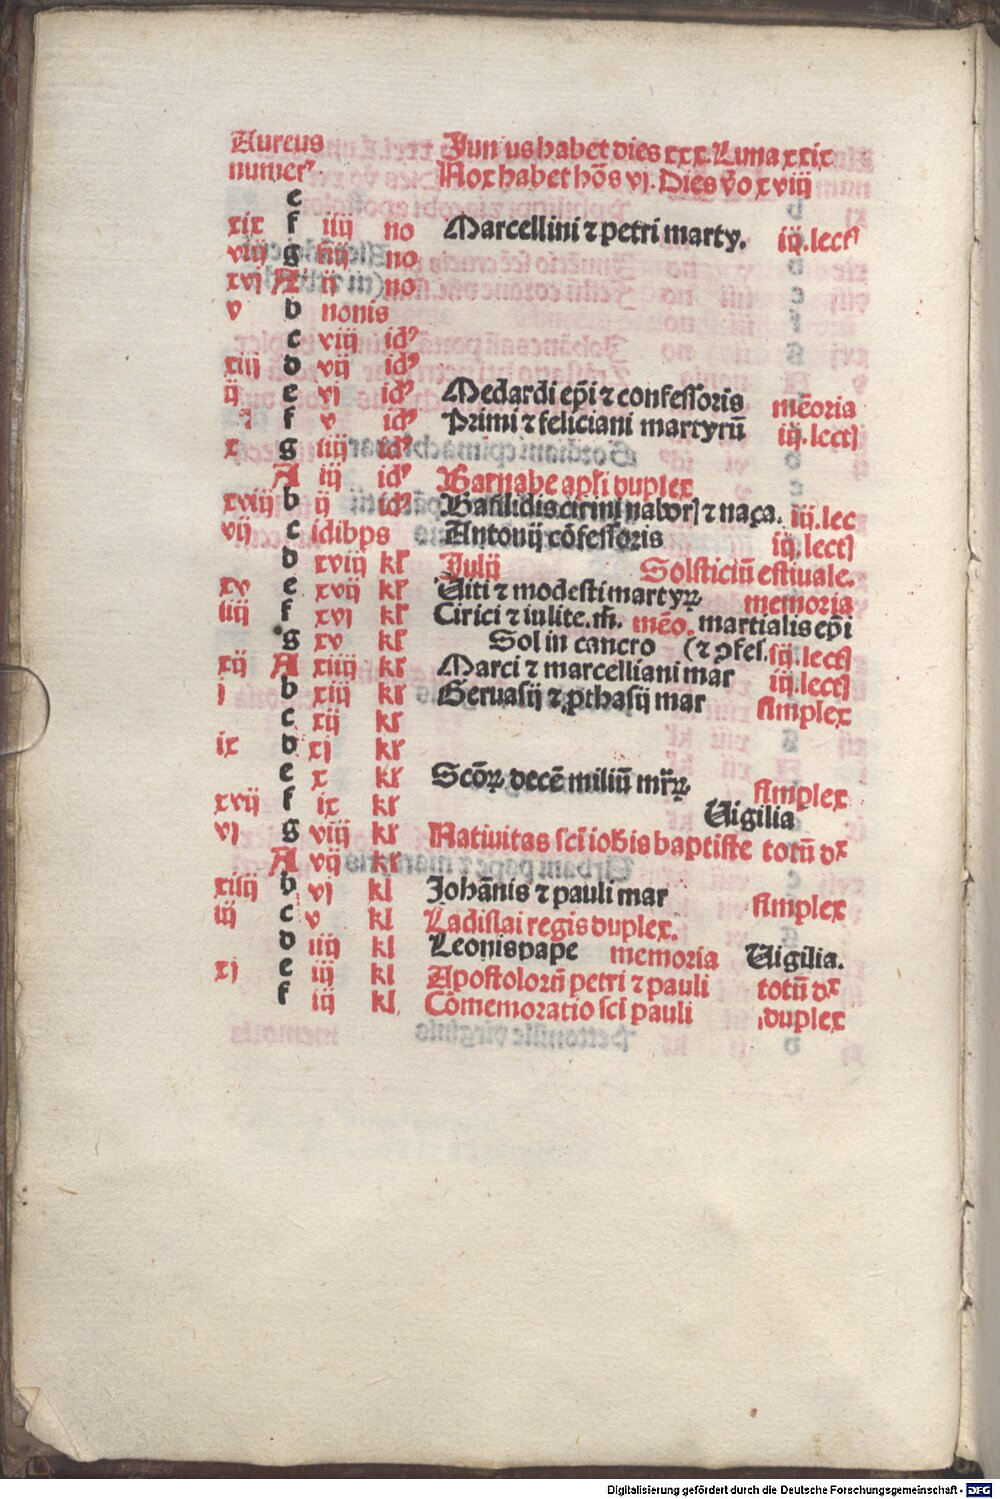 Aureus Junius habet dies xxx. Luna xxix
numerꝰ Nox habet hōs vj. Dies v̄o xviij
e
xix f iiij no Marcellini ⁊ petri marty. iij.lectꝭ
viij g iij no
xvj A ij no
v b nonis
c viij idꝰ
xiij d vij idꝰ
ij e vj idꝰ Medardi ep̄i ⁊ confessoris mēoria
f v idꝰ Primi ⁊ feliciani martyrū iij.lectꝭ
x g iiij idꝰ
A iij idꝰ Barnabe apl̄i duplex
xviij b ij idꝰ Basilidis cirini naborꝭ ⁊ naça. iij.lec
vij c idibps Antonij cōfessoris iij.lectꝭ
d xviij kl̄ Julij Solsticiū estiuale.
xv e xvij kl̄ Uiti ⁊ modesti martyꝝ memoria
iiij f xvj kl̄ Cirici ⁊ iulite.m̄. mēo. martialis ep̄i
g xv kl̄ Sol in cancro (⁊ ꝯfes. iij.lectꝭ
xij A xiiij kl̄ Marci ⁊ marcelliani mar iij.lectꝭ
j b xiij kl̄ Geruasij ⁊ ꝓthasij mar simplex
c xij kl̄
ix d xj kl̄
e x kl̄ Scōꝝ decē miliū mr̄ꝝ simplex
xvij f ix kl̄ Uigilia
vj g viij kl̄ Natiuitas sc̄i ioh̄is baptiste totū dx
A vij kl̄
xiiij b vj kl Johānis ⁊ pauli mar simplex
iij c v kl Ladislai regis duplex.
d iiij kl Leonis pape memoria Uigilia.
xj e iij kl Apostolorū petri ⁊ pauli totū dx
f iij kl Cōmemoratio sc̄i pauli duplex
Digitalisierung gefördert durch die Deutsche Forschungsgemeinschaft - DFG